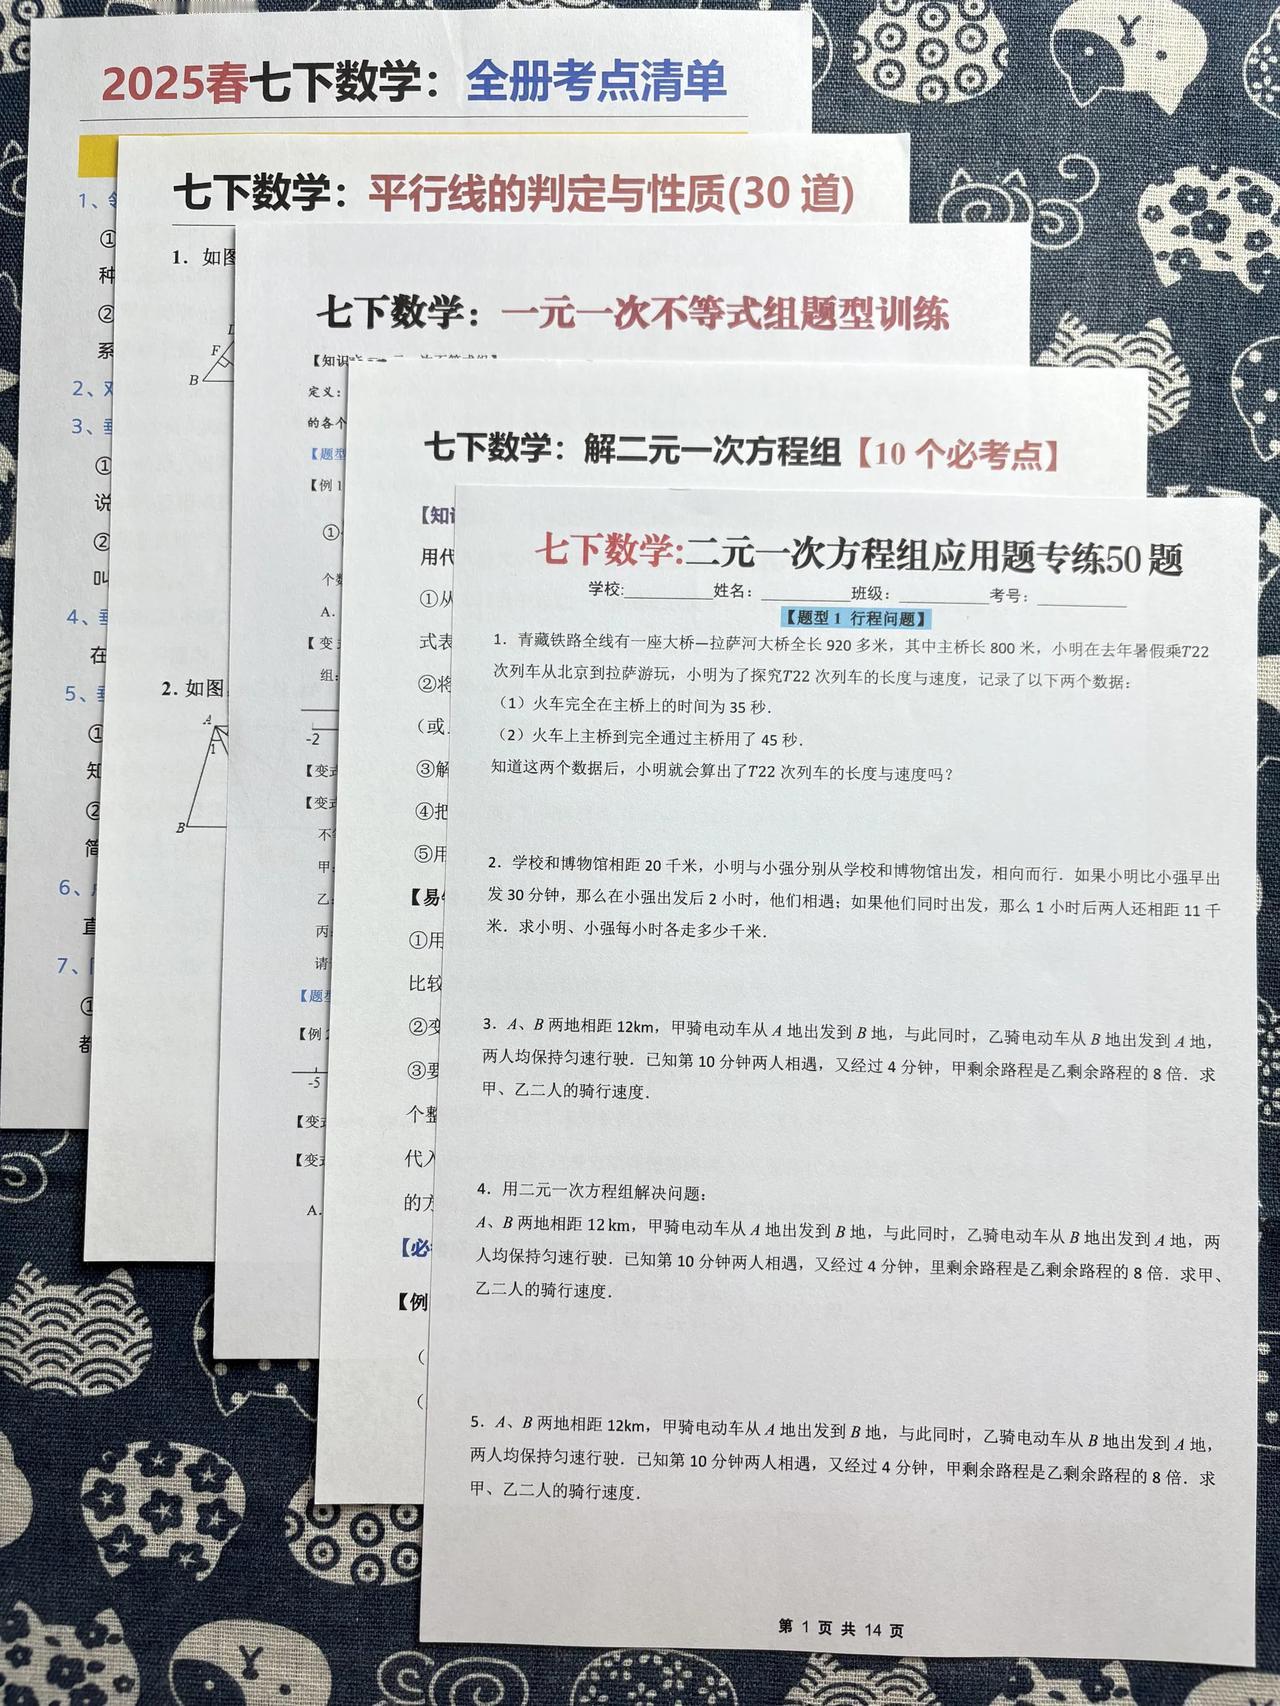 2025春七下数学：全册考点清单
1、
①
种
②
系
2、
3、
①
说
②
叫
4、
在
5、
①
知
②
简
6、
直
7、
①
都
七下数学：平行线的判定与性质(30 道)
1．如图
F
B
2. 如图
A
1
B
七下数学：一元一次不等式组题型训练
【知识
定义：
的各个
【题型
【例 1
①
个数
A.
【变
组：
-2
【变式
【变式
不等
甲：
乙：
丙：
请
【题型
【例 2
-5
【变式
【变式
A.
七下数学：解二元一次方程组【10 个必考点】
【知识
用代
①从
式表
②将
（或
③解
④把
⑤用
【易错
①用
比较
②变
③要
个整
代入
的方
【必
【例
（
（
七下数学:二元一次方程组应用题专练50 题
学校:__________姓名：__________班级：__________考号：__________
【题型 1 行程问题】
1．青藏铁路全线有一座大桥—拉萨河大桥全长 920 多米，其中主桥长 800 米，小明在去年暑假乘T22
次列车从北京到拉萨游玩，小明为了探究T22 次列车的长度与速度，记录了以下两个数据：
（1）火车完全在主桥上的时间为 35 秒．
（2）火车上主桥到完全通过主桥用了 45 秒．
知道这两个数据后，小明就会算出了T22 次列车的长度与速度吗？
2．学校和博物馆相距 20 千米，小明与小强分别从学校和博物馆出发，相向而行．如果小明比小强早出
发 30 分钟，那么在小强出发后 2 小时，他们相遇；如果他们同时出发，那么 1 小时后两人还相距 11 千
米．求小明、小强每小时各走多少千米．
3．A、B 两地相距 12km，甲骑电动车从 A 地出发到 B 地，与此同时，乙骑电动车从 B 地出发到 A 地，
两人均保持匀速行驶．已知第 10 分钟两人相遇，又经过 4 分钟，甲剩余路程是乙剩余路程的 8 倍．求
甲、乙二人的骑行速度．
4．用二元一次方程组解决问题：
A、B 两地相距 12 km，甲骑电动车从 A 地出发到 B 地，与此同时，乙骑电动车从 B 地出发到 A 地，两
人均保持匀速行驶．已知第 10 分钟两人相遇，又经过 4 分钟，里剩余路程是乙剩余路程的 8 倍．求甲、
乙二人的骑行速度．
5．A、B 两地相距 12km，甲骑电动车从 A 地出发到 B 地，与此同时，乙骑电动车从 B 地出发到 A 地，
两人均保持匀速行驶．已知第 10 分钟两人相遇，又经过 4 分钟，甲剩余路程是乙剩余路程的 8 倍．求
甲、乙二人的骑行速度．
第 1 页 共 14 页